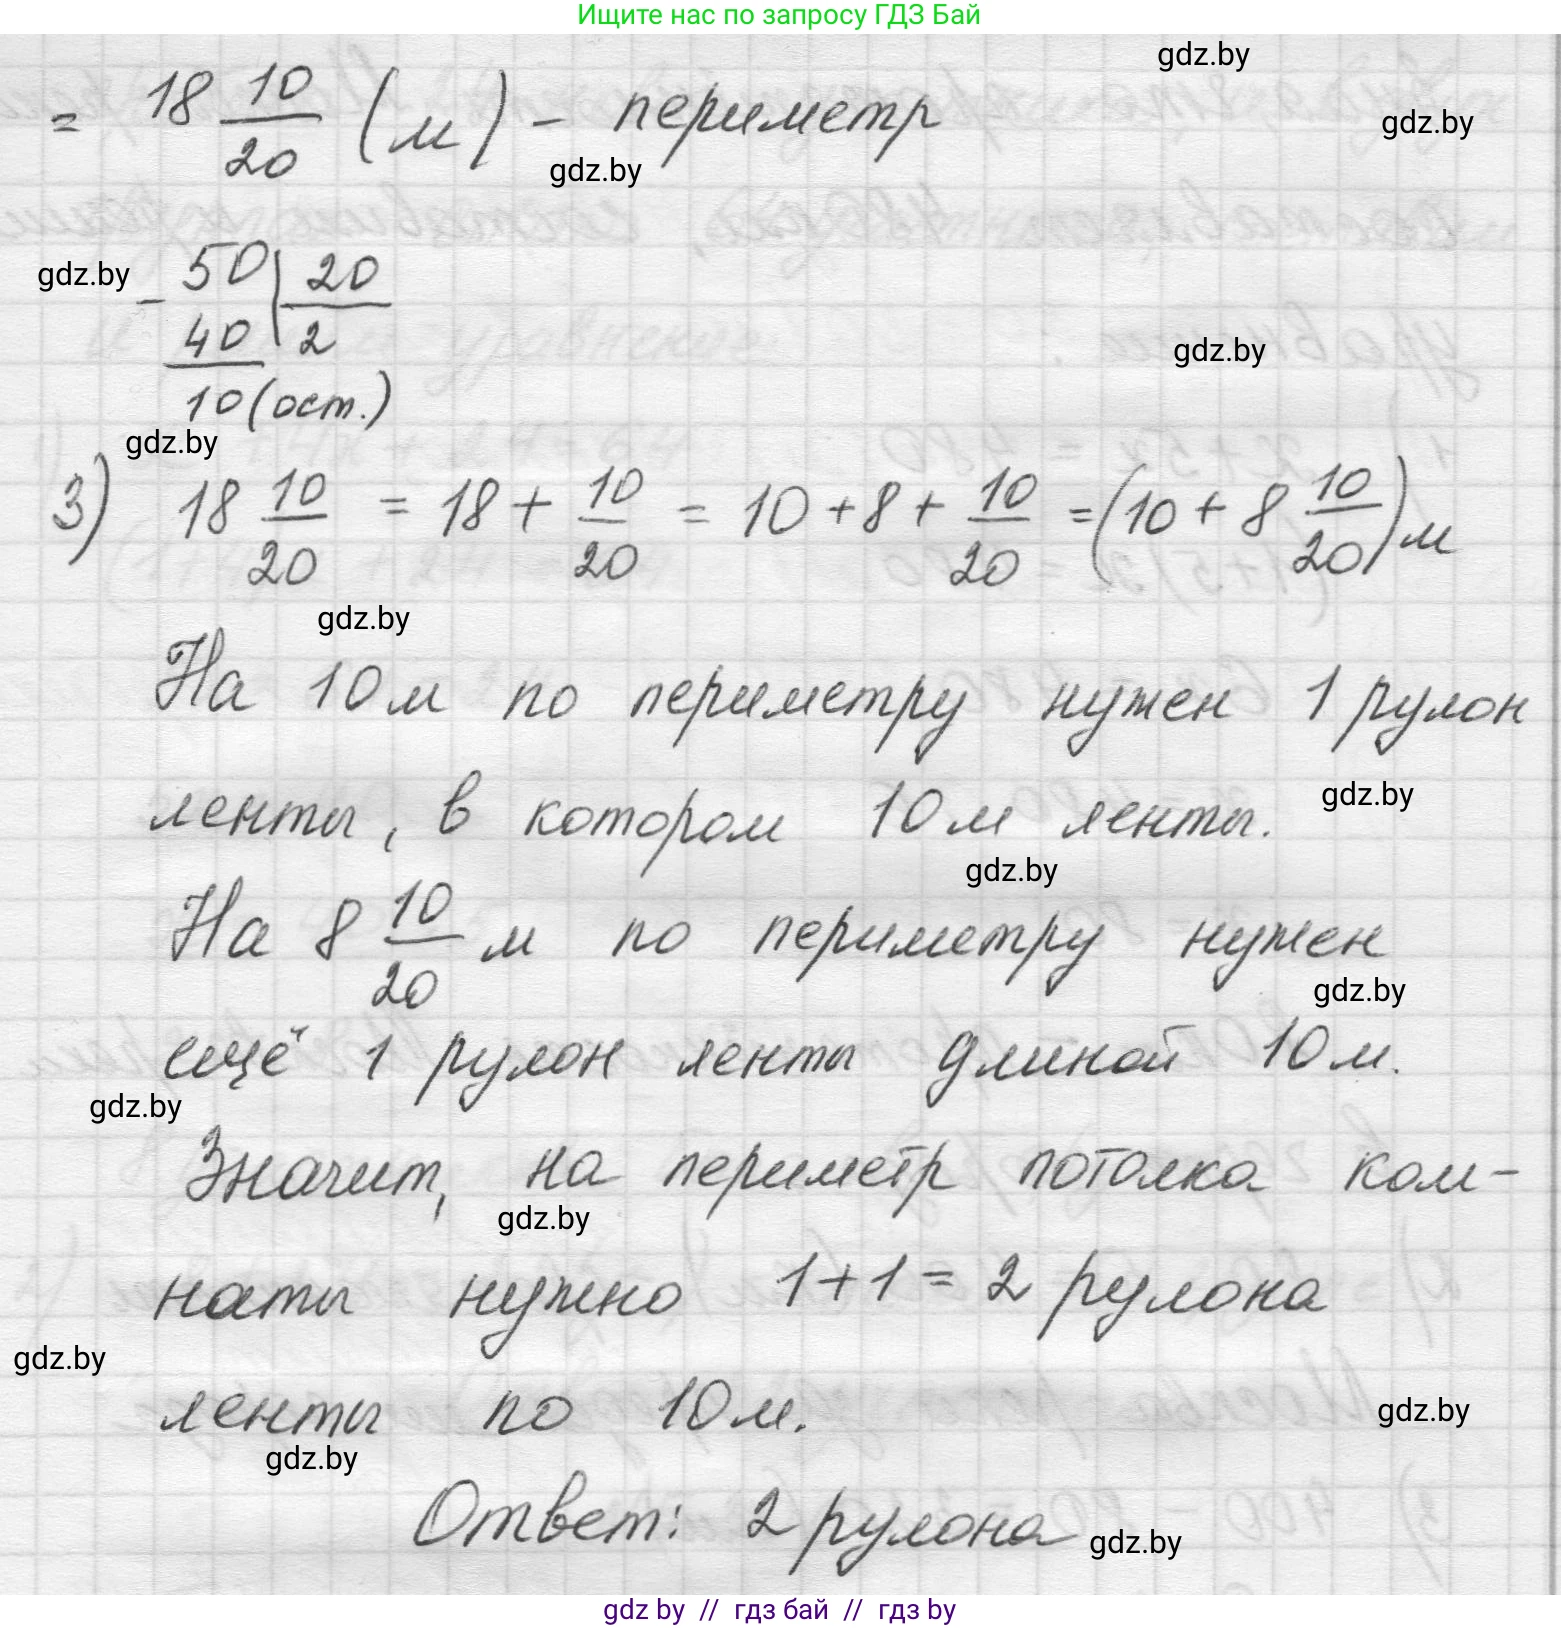 Ищите нас по запросу ГДЗ Бай
gdz.by
= 18 10/20 (м) - периметр
gdz.by
gdz.by
gdz.by
- 50 | 20
40 | 2
gdz.by
10 (ост.)
gdz.by
3) 18 10/20 = 18 + 10/20 = 10 + 8 + 10/20 = (10 + 8 10/20) м
gdz.by
На 10 м по периметру нужен 1 рулон
ленты, в котором 10 м ленты.
gdz.by
gdz.by
На 8 10/20 м по периметру нужен
gdz.by
ещё 1 рулон ленты длиной 10 м.
gdz.by
Значит, на периметр потолка ком-
gdz.by
наты нужно 1 + 1 = 2 рулона
gdz.by
ленты по 10 м.
gdz.by
gdz.by
Ответ: 2 рулона
gdz.by
gdz by // гдз бай // гдз by